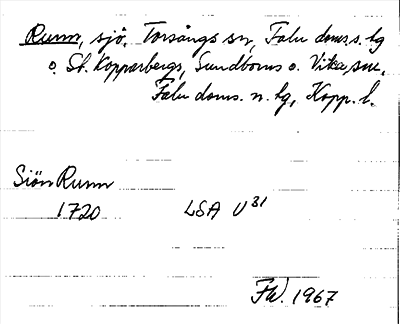 Runn, sjö. Torsångs sn, Falu doms. s. tg
o. St. Kopparbergs, Sundborns o. Vika snr,
Falu doms. n. tg, Kopp. l.
Siön Runn
1720 LSA U31
FW. 1967